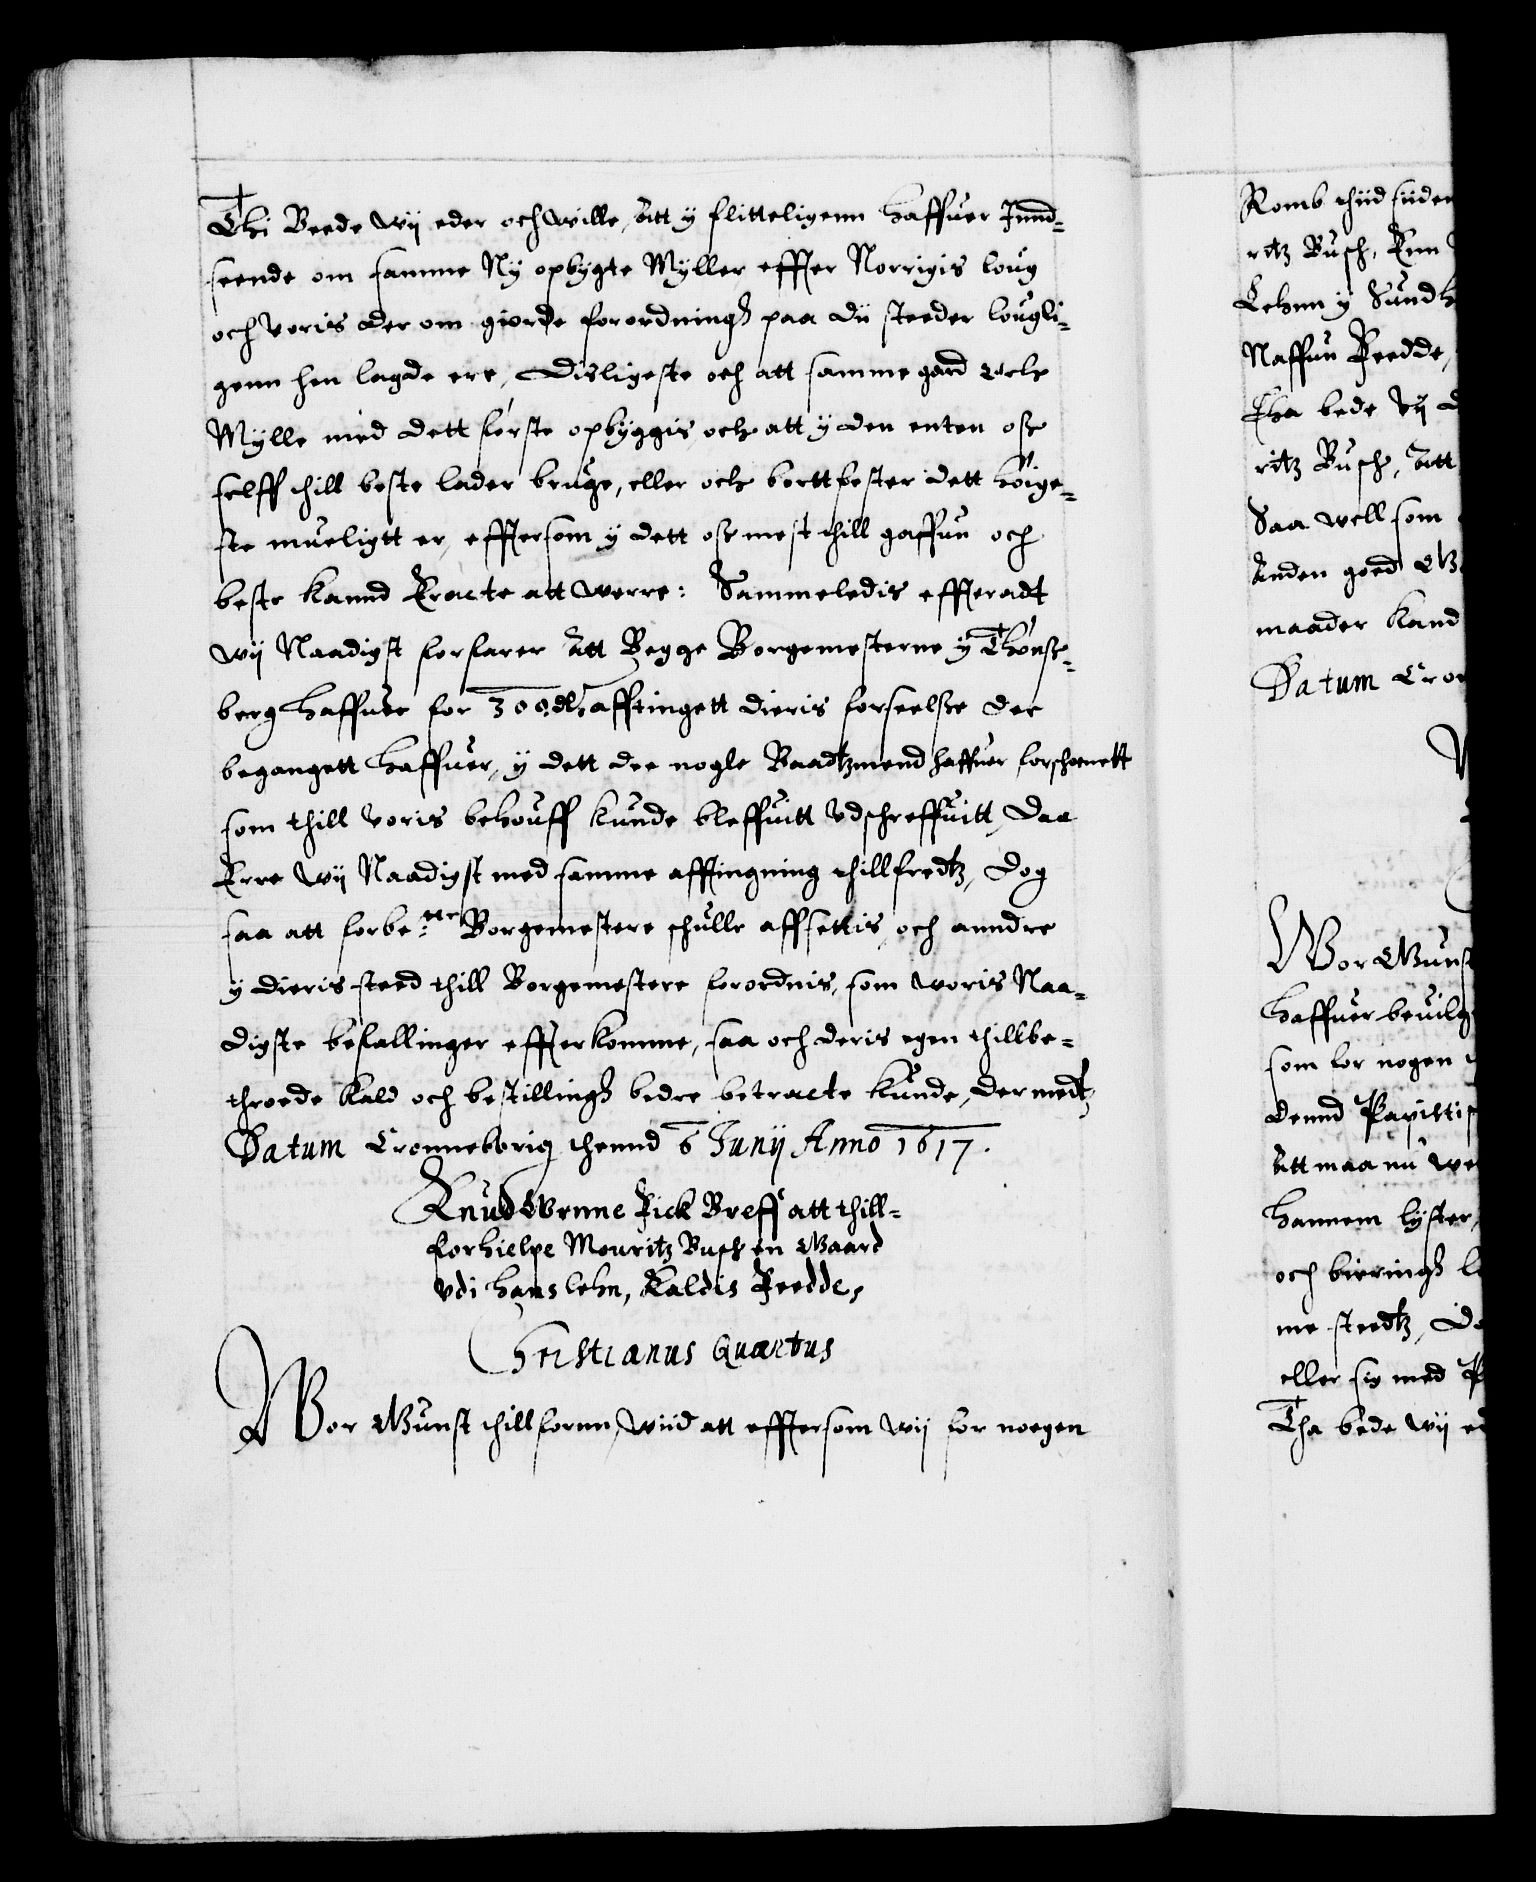 Thi Beede wij eder och wille, Att y flitteligenn haffuer Innd-
seende om samme Ny opbygte Myller effter Norrigis loug
och voris der om giorde forordningh paa dii steeder lougli-
genn hen lagde ere, Disligeste och att samme gard och
Mylle med dett første opbyggis och att y den enten oss
selff thill beste lader bruge, eller och borttfester dett høige-
ste mueligtt er, efftersom y dett oss mest thill gaffun och
beste kannd Eracte att werre: Sammeledis effteradt
wij Naadigst forfarer Att Begge Borgemesterne y Thønss-
berg haffuer for 300 dl. afftingett dieris forseelsse der
begangett haffuer, y dett dee nogle Baadtzmend haffuer forschoenett
som thill voris behouff kunde bleffuitt vdschreffuitt, Daa
Erre wij Naadigst med samme afftingning thillfredtz, Dog
saa att forbe:ne Borgemestere schulle affsettis, och anndre
y dieris steed thill Borgemestere forordnis, som woris Naa-
digste befallinger effterkomme, saa och deris egen thillbe-
throede Kald och bestillingh bedre betracte kunde, dermedt,
Datum Cronneborig thennd 6 Junij Anno 1617.
Knud Vrnne Fick Breff att thill-
forhielpe Mouritz Busch en Gaard
vdi hans lehn, Kaldis Feedde,
Christianus Quartus
Wor Gunst thillfornn, Wiid att efftersom wij for noegen
Romb thiid siiden
ritz Busch, Enn
Lehnn y Sundh
Naffun Feedde,
Tha bede Vij
ritz Busch, Att
Saa well som
Anden goed
maader kand
Datum Cro
Wor Gunst
haffuer beuilg
som for nogen
dennd Papisti
Att maa nu we
hannem lyster,
och birringh
me steedtz, Do
eller sig med
Tha bede wij ed